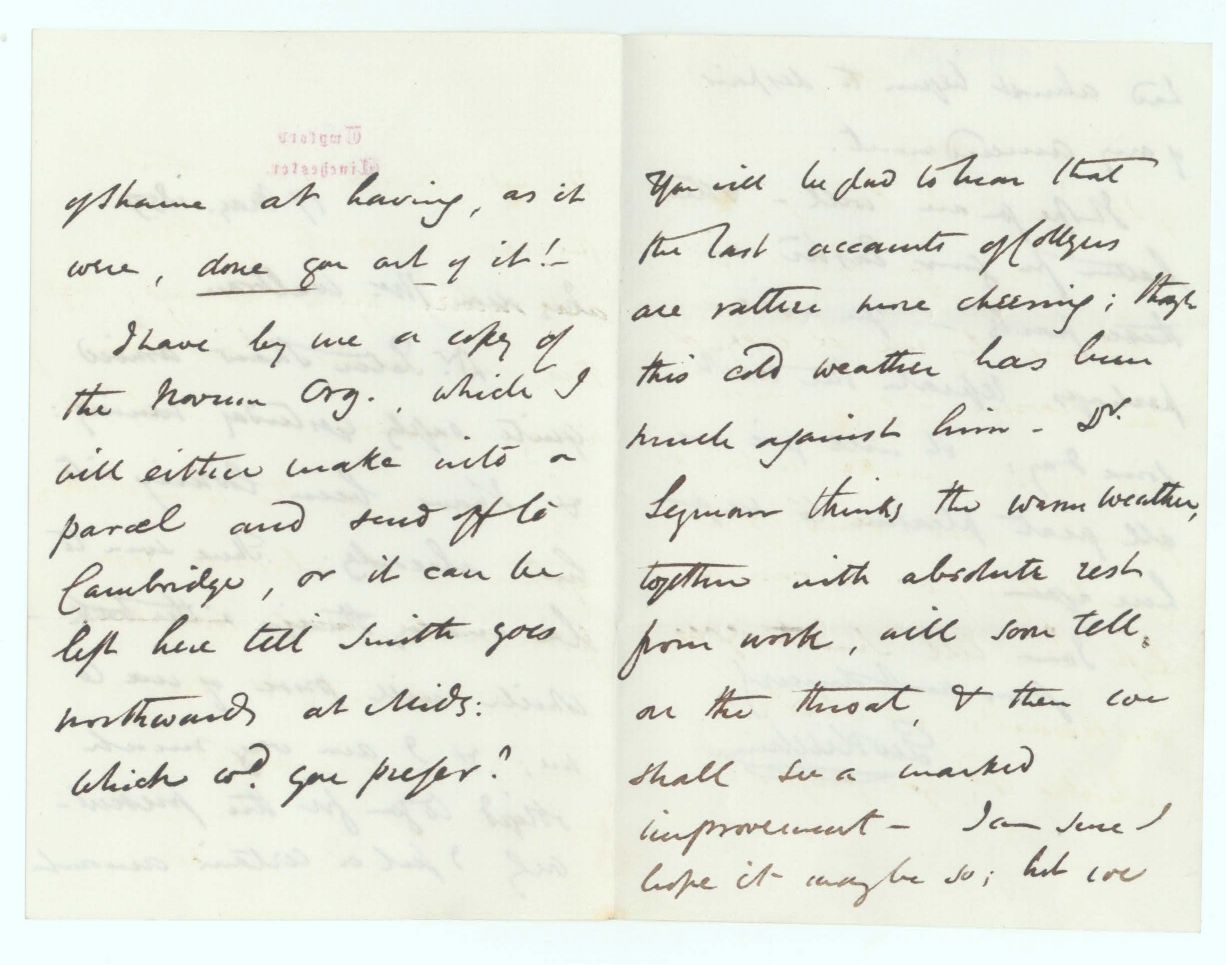 of shame at having, as it
were, done you out of it! -
I have by me a copy of
the Novum Org., which I
will either make into a
parcel and send off to
Cambridge, or it can be
left here till Smith goes
northwards at Mids:
which wd. you prefer?
You will be glad to hear that
the last accounts of
are rather more cheering; though
this cold weather has been
much against him - Dr.
thinks the warm weather,
together with absolute rest
from work, will soon tell
on the throat, & then we
shall see a marked
improvement - I am sure I
hope it may be so; but we